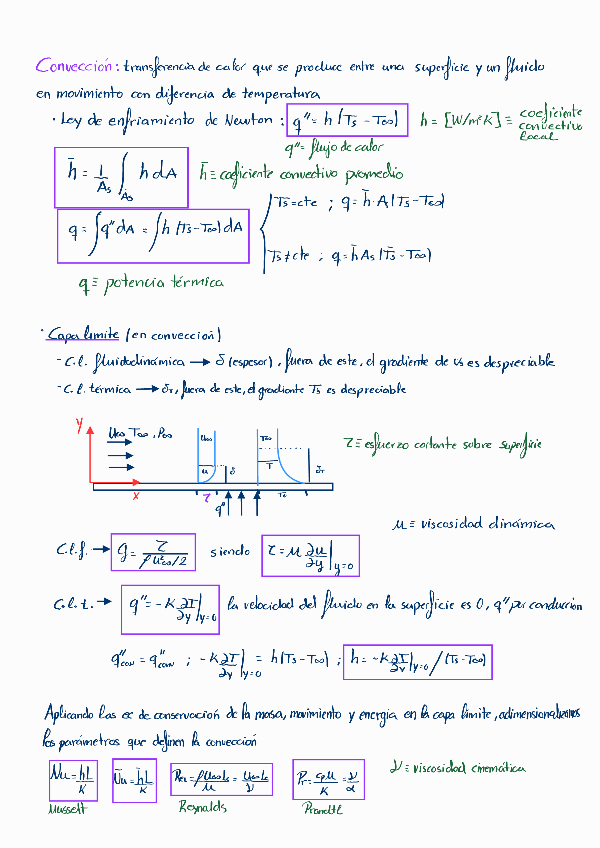 Convección: transferencia de calor que se produce entre una superficie y un fluido
en movimiento con diferencia de temperatura
· Ley de enfriamiento de Newton: q'' = h (Ts - T∞) h = [W/m²K] ≡ coeficiente convectivo local
q'' = flujo de calor
h̄ = 1/As ∫As h dA h̄ ≡ coeficiente convectivo promedio
q = ∫ q'' dA = ∫ h (Ts - T∞) dA
Ts = cte ; q = h̄ · A (Ts - T∞)
Ts ≠ cte ; q = h̄ As (T̄s - T∞)
q ≡ potencia térmica
· Capa límite (en convección)
- C.l. fluidodinámica → δ (espesor), fuera de este, el gradiente de vs es despreciable
- C.l. térmica → δT, fuera de este, el gradiente Ts es despreciable
y U∞ T∞, P∞ U∞ T∞
u δ T δT
x τ Ts
q''
τ ≡ esfuerzo cortante sobre superficie
μ ≡ viscosidad dinámica
C.l.f. → G = τ / (ρ U²∞/2) siendo τ = μ ∂u/∂y |y=0
C.l.t. → q'' = -K ∂T/∂y |y=0 la velocidad del fluido en la superficie es 0, q'' por conducción
q''cov = q''conv ; -K ∂T/∂y |y=0 = h (Ts - T∞) ; h = -K ∂T/∂y |y=0 / (Ts - T∞)
Aplicando las ec de conservación de la masa, movimiento y energía en la capa límite, adimensionalizamos
los parámetros que definen la convección
Nu = hL/K N̄u = h̄L/K Re = ρU∞L/μ = U∞L/ν Pr = cpμ/K = ν/α ν ≡ viscosidad cinemática
Nusselt Reynolds Prandtl